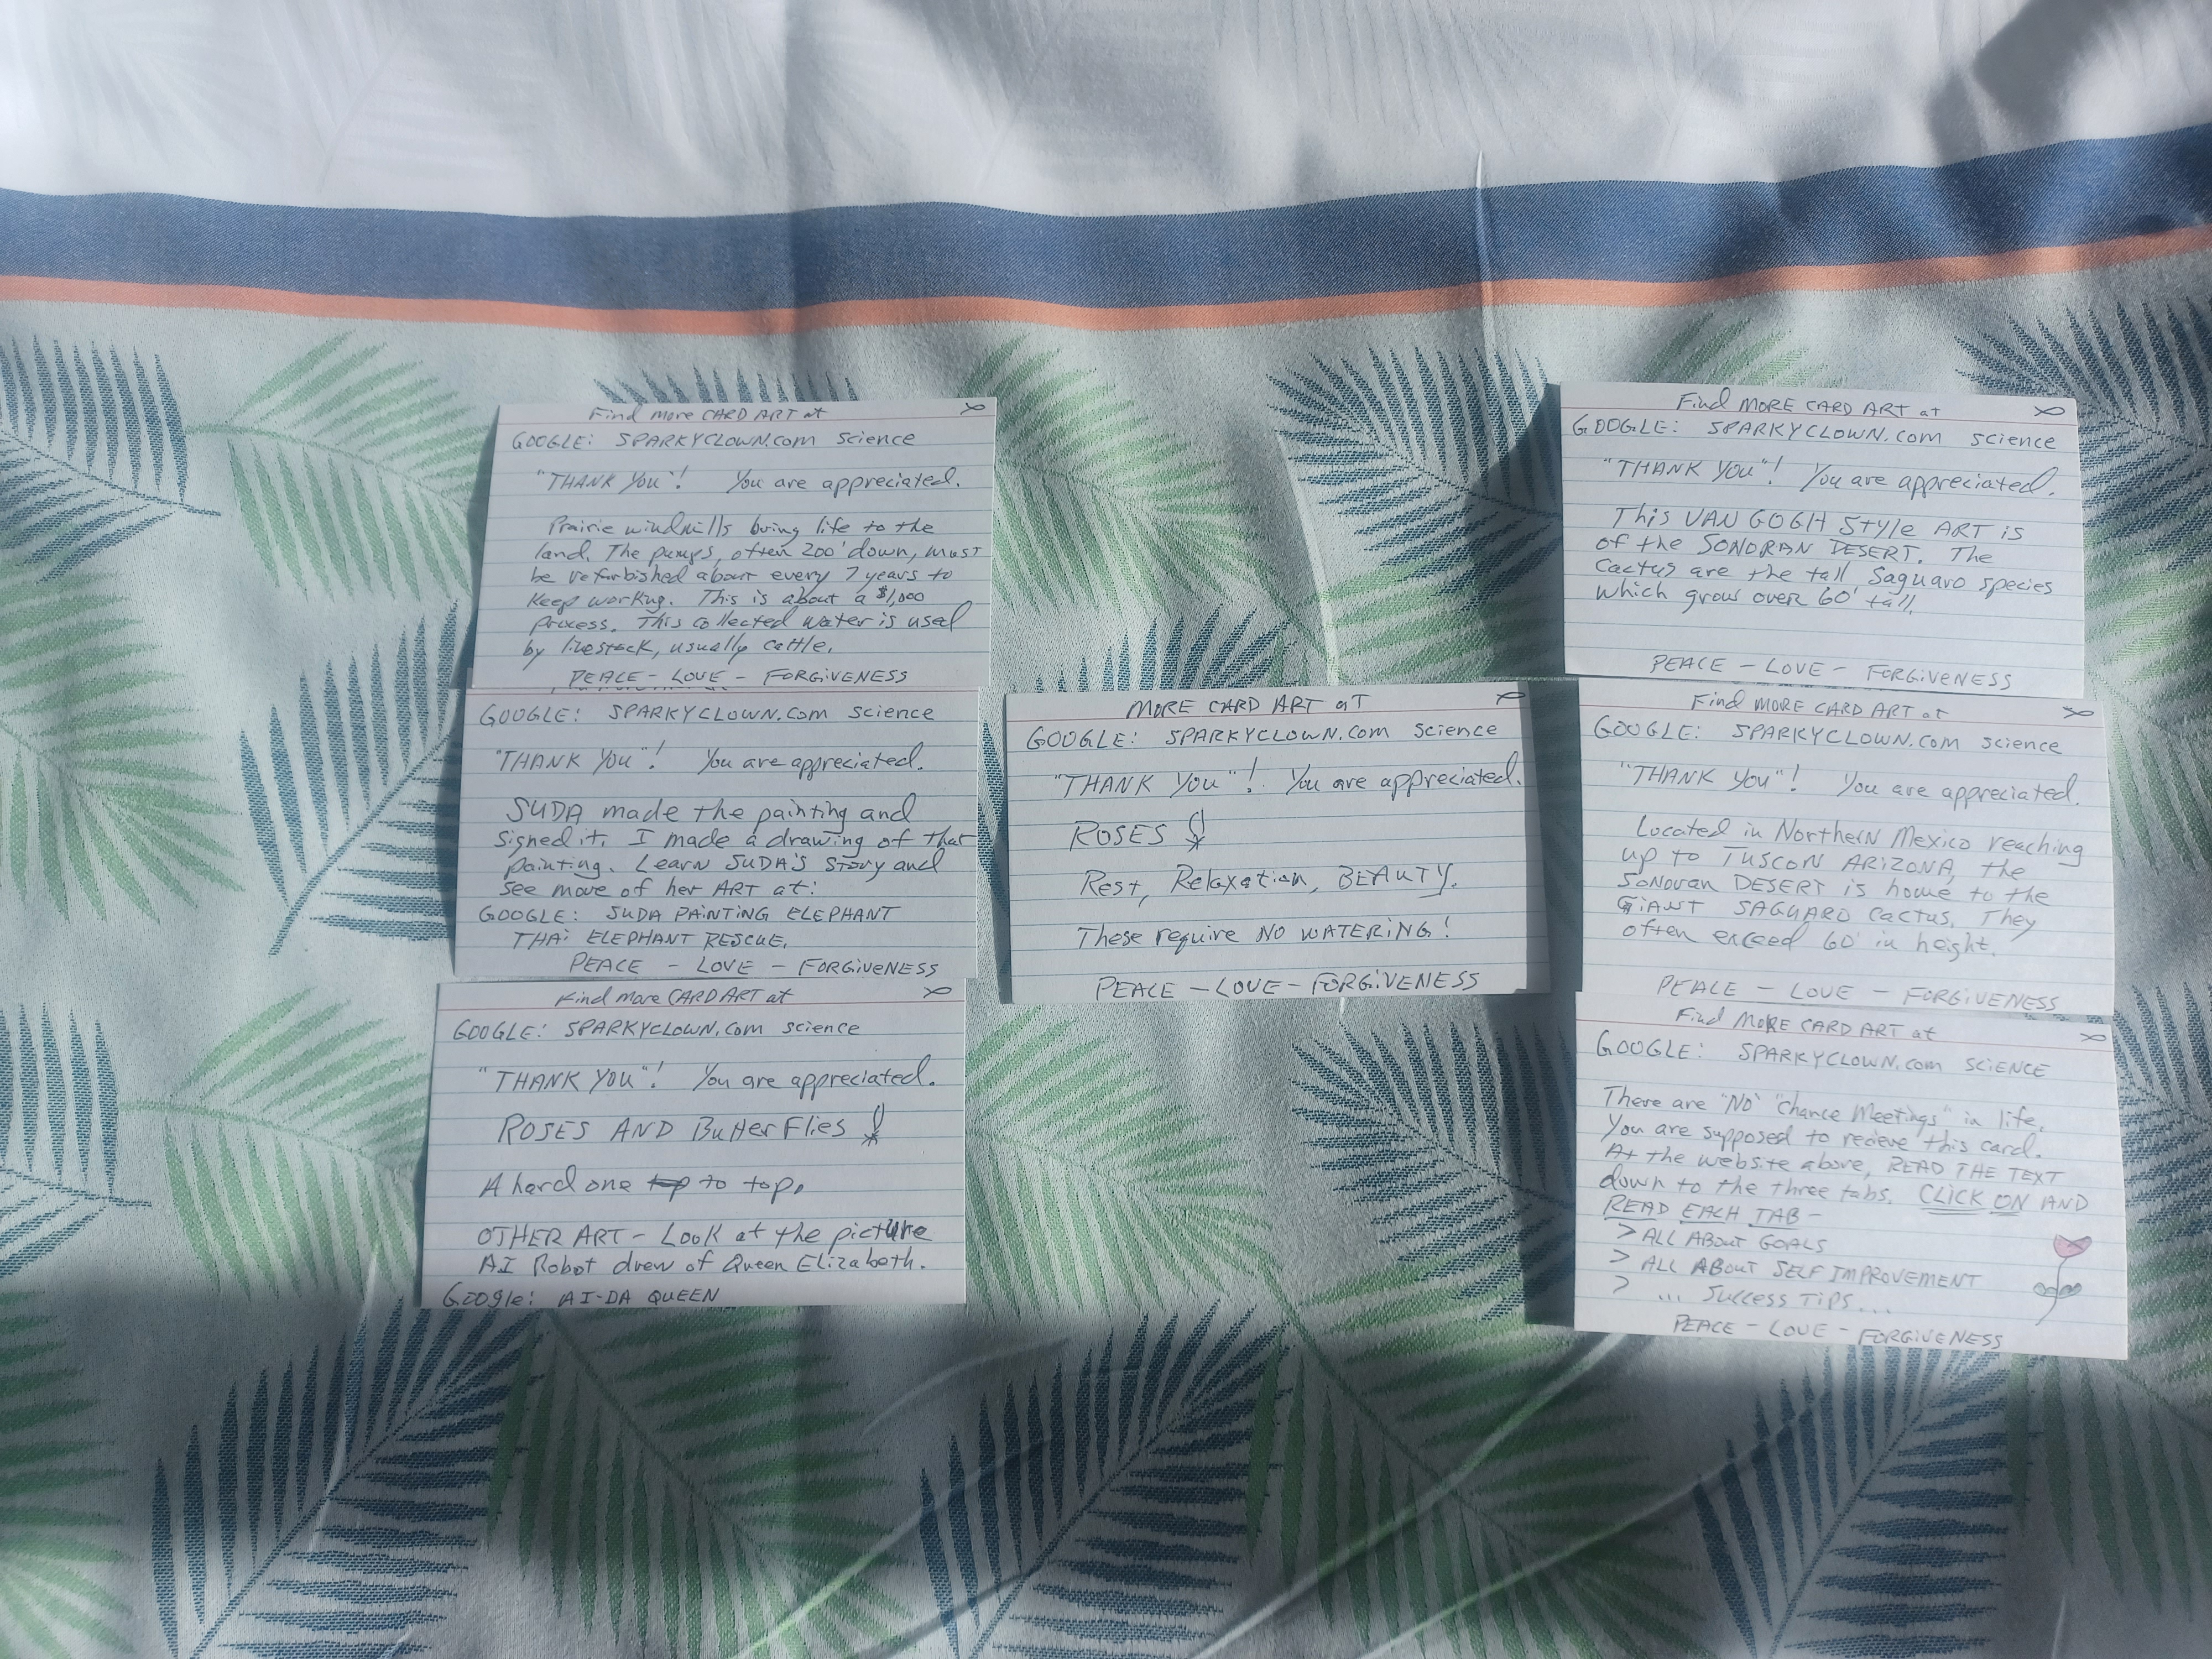 Find more CARD ART at
GOOGLE: SPARKYCLOWN.com science
"THANK YOU"! You are appreciated.
Prairie windmills bring life to the
land. The pumps, often 200' down, must
be refurbished about every 7 years to
keep working. This is about a $1,000
process. This collected water is used
by livestock, usually cattle.
PEACE - LOVE - FORGIVENESS
GOOGLE: SPARKYCLOWN.com science
"THANK YOU"! You are appreciated.
SUDA made the painting and
signed it. I made a drawing of that
painting. Learn SUDA'S story and
see more of her ART at:
GOOGLE: SUDA PAINTING ELEPHANT
THAI ELEPHANT RESCUE.
PEACE - LOVE - FORGIVENESS
Find more CARD ART at
GOOGLE: SPARKYCLOWN.com science
"THANK YOU"! You are appreciated.
ROSES AND Butterflies
A hard one to top.
OTHER ART - Look at the picture
AI Robot drew of Queen Elizabeth.
Google: AI-DA QUEEN
MORE CARD ART at
GOOGLE: SPARKYCLOWN.com science
"THANK YOU"! You are appreciated.
ROSES
Rest, Relaxation, BEAUTY.
These require NO WATERING!
PEACE - LOVE - FORGIVENESS
Find MORE CARD ART at
GOOGLE: SPARKYCLOWN.com science
"THANK YOU"! You are appreciated.
This VAN GOGH Style ART is
of the SONORAN DESERT. The
cactus are the tall Saguaro species
which grow over 60' tall.
PEACE - LOVE - FORGIVENESS
Find MORE CARD ART at
GOOGLE: SPARKYCLOWN.com science
"THANK YOU"! You are appreciated.
Located in Northern Mexico reaching
up to TUSCON ARIZONA, the
Sonoran DESERT is home to the
GIANT SAGUARO Cactus. They
often exceed 60' in height.
PEACE - LOVE - FORGIVENESS
Find MORE CARD ART at
GOOGLE: SPARKYCLOWN.com SCIENCE
There are "NO" "Chance Meetings" in life.
You are supposed to recieve this card.
At the website above, READ THE TEXT
down to the three tabs. CLICK ON AND
READ EACH TAB -
> ALL ABOUT GOALS
> ALL ABOUT SELF IMPROVEMENT
> ... SUCCESS TIPS ...
PEACE - LOVE - FORGIVENESS